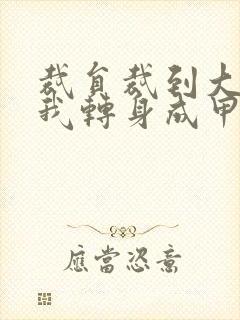 裁員裁到大
我轉身成甲
應當恣意